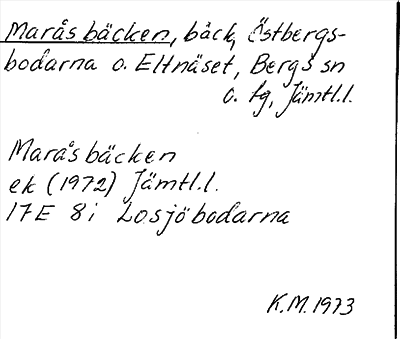 Maråsbäcken, bäck, Östbergs-
bodarna o. Eltnäset, Bergs sn
o. tg, Jämtl.l.
Maråsbäcken
ek (1972) Jämtl.l.
17E 8i Losjöbodarna
K.M. 1973